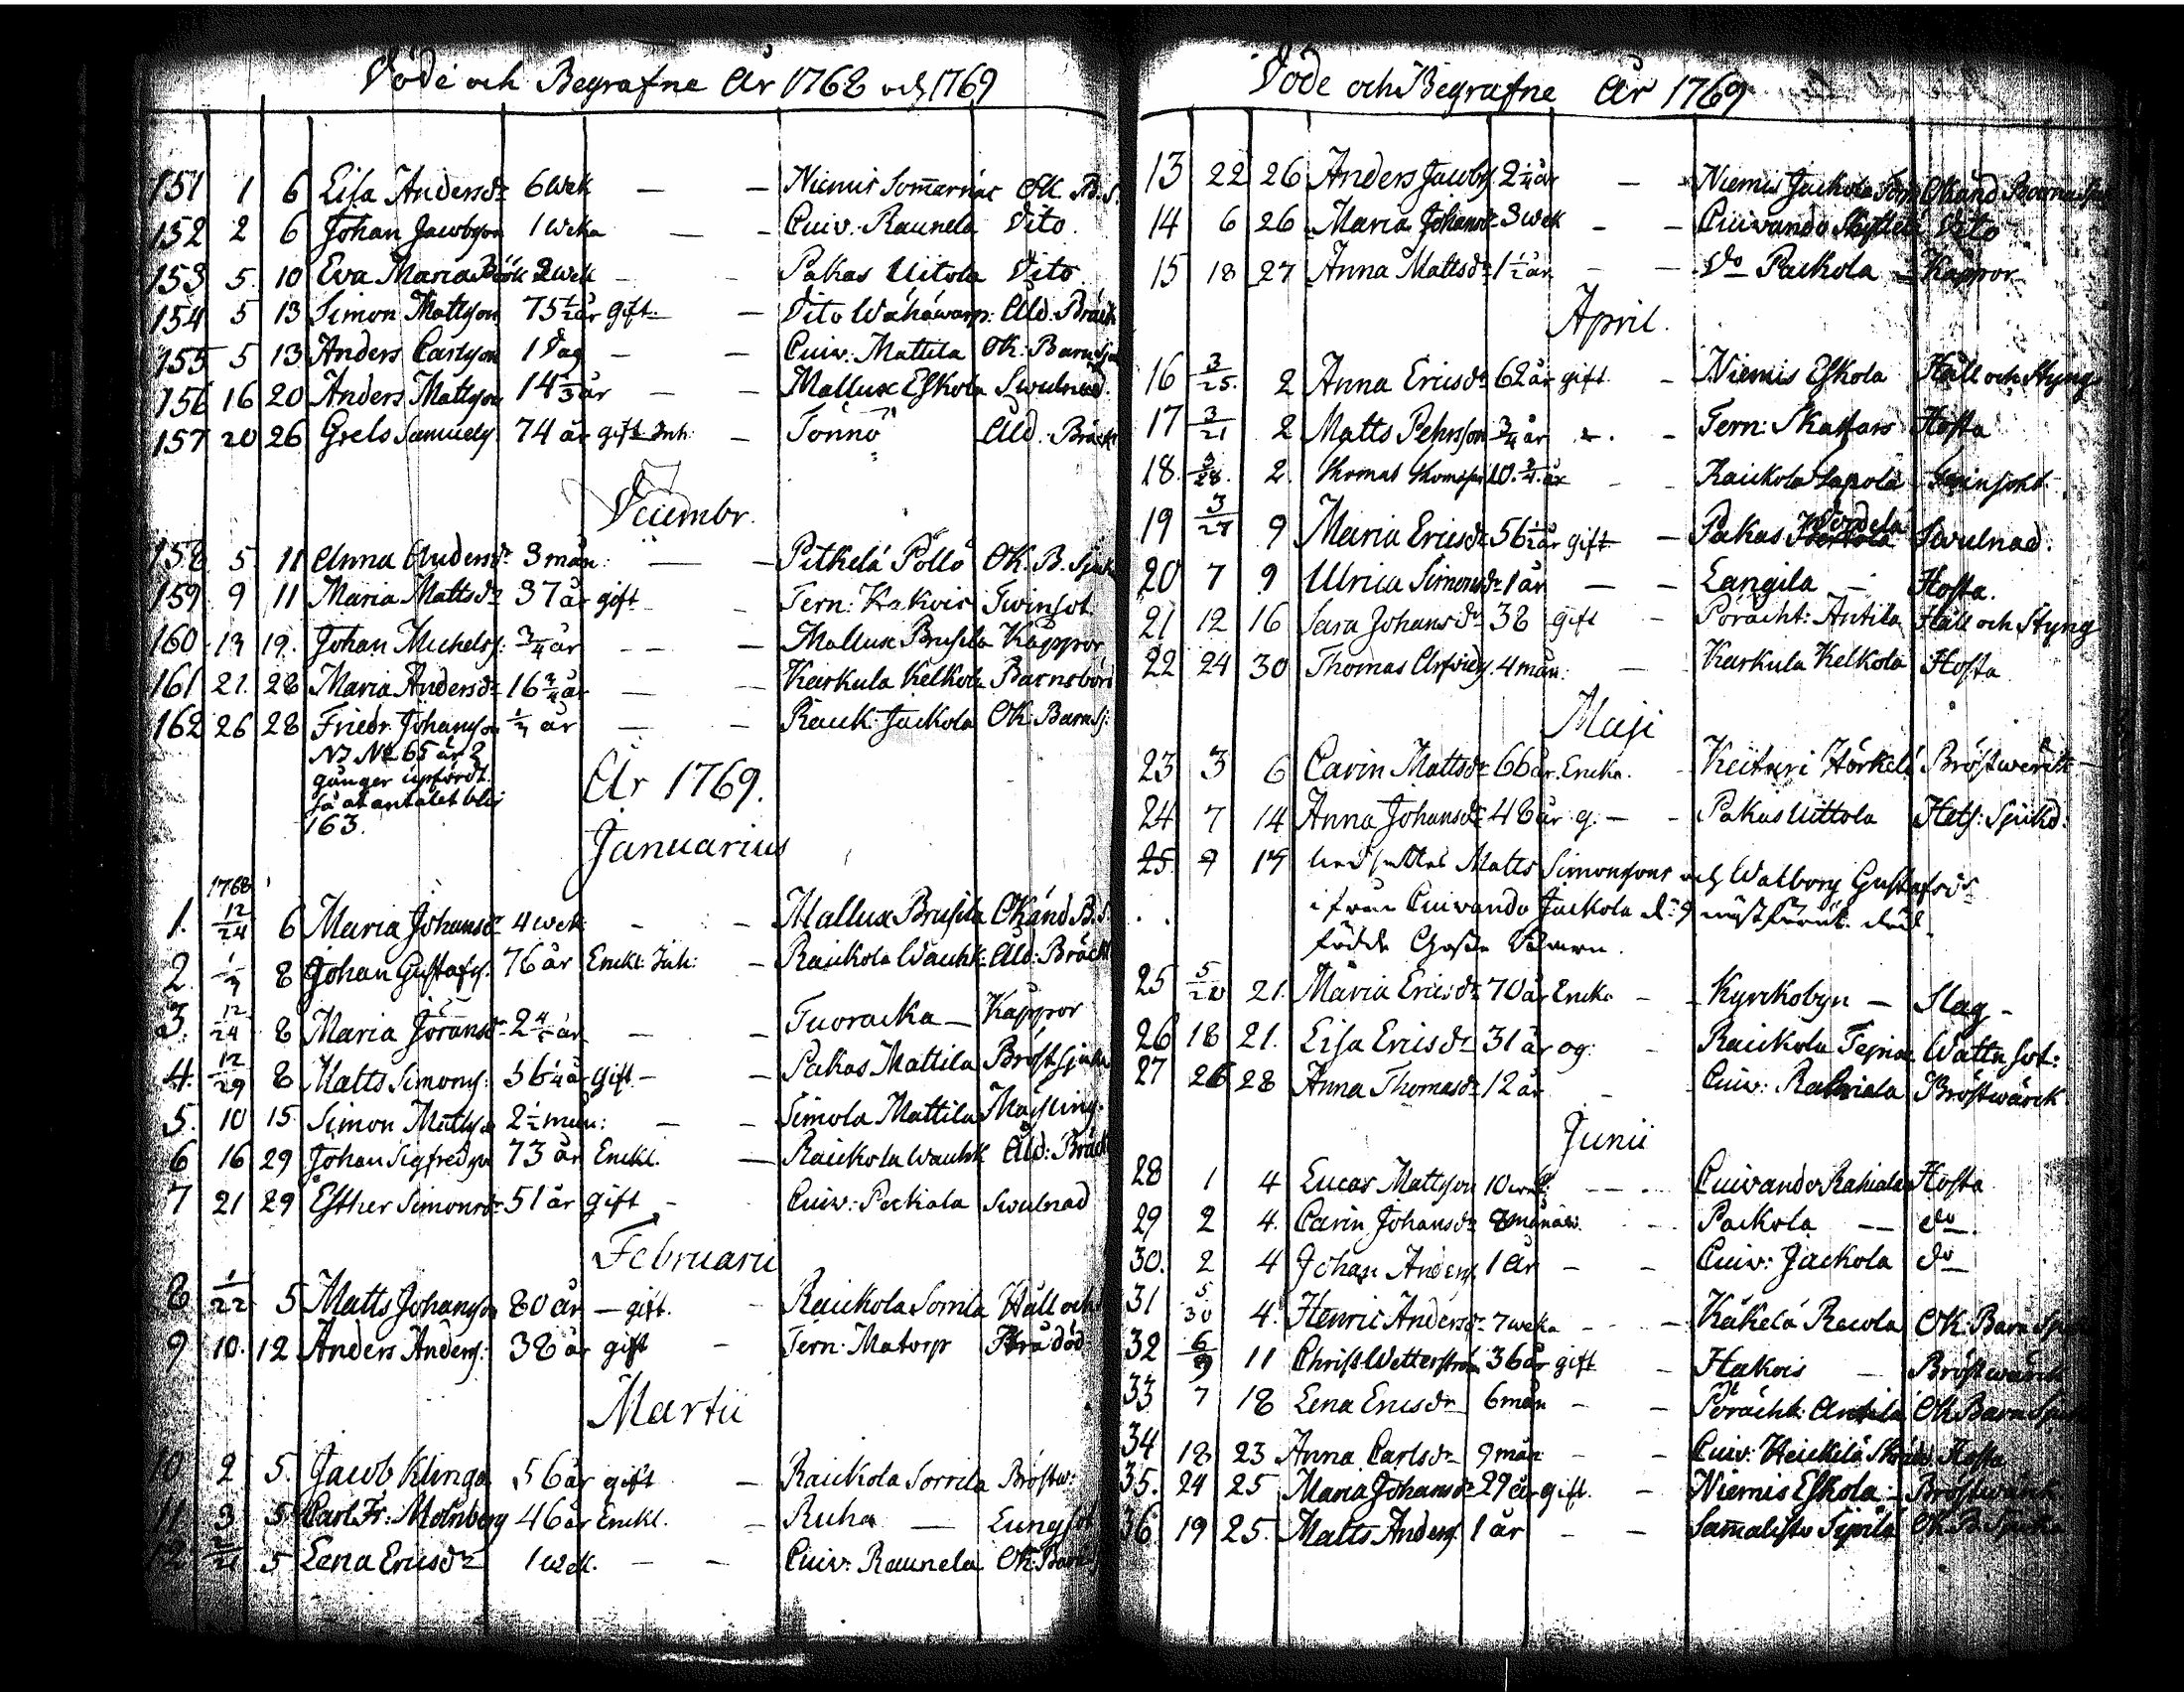 Döde och Begrafne År 1768 och 1769
151 1 6 Lisa Andersdr 6 wek — — Niemis Som̄arnäs Ok. B.S.
152 2 6 Johan Jacobson 1 weka — — Cuiv: Raunela Dito
153 5. 10 Eva Maria Böök 2 wek — — Pakas Uitola Dito
154 5 13 Simon Mattson 75 1/2 år gift. — Dito Wähäwarp: Åld: Bräck
155 5 13 Anders Carlson 1 Dag — — Cuiv: Mattila Ok: Barnsju
156 16 20 Anders Mattson 14 1/3 år — — Mallux Eskola Swulnad.
157 20 26 Grels Samuels. 74 år gift Inh: — Tönnö Åld: Bräckl
Decembr.
158 5. 11 Anna Andersdr 3 mån: — — Pitkelä Pöllö OK. B. Sjuk
159 9 11 Maria Mattsdr 37 år gift — Tern: Kakois Twinsot
160 13 19. Johan Michels: 3/4 år — — Mallux Brusila Kåppor
161 21. 28 Maria Andersdr 16 3/4 år — — Karkula Kelkola Barnsbörd
162 26 28 Friedr. Johanson 1/2 år — — Rauk: Jackola OK: Barnsj:
NB No 65 är 2
gånger upfördt.
så at antalet blir
163.
År 1769.
Januarius
1768
1. 12/24 6 Maria Johansdr 4 wek — — Mallux Brusila Okänd B.S.
2. 1/3 8 Johan Gustafs. 76 år Enckl. Inh: — Raukola Wauhk: Åld: Bräckl
3. 12/24 8 Maria Göransdr 2 år — — Tuoracka — Kåppor
4. 12/29 8 Matts Simons: 56 1/4 år gift. — — Pakas Mattila Bröstsjuka
5. 10 15. Simon Mattson 2 1/2 mån: — — Simola Mattila Mässling.
6 16 29 Johan Sigfredson 73 år Enckl. — Raukola Wauhk Åld: Bräck
7 21 29 Esther Simonsdr 51 år gift — Cuiv: Peckala Swulnad
Februarii
8 1/22 5 Matts Johanson 80 år — gift. — Raukola Sorrila Håll och
9 10. 12 Anders Anders: 38 år gift — Tern: Matorp Brådöd
Martii
10 2 5. Jacob Klinga 56 år gift — Raukola Sorrila Bröstw:
11 3 5 Carl Fr: Molnberg 46 år Enckl. — Ruha — Lungsot
12 2/21 5 Lena Ericsdr 1 wek. — — Cuiv: Raunela OK: Barn
Döde och Begrafne År 1769
13 22 26 Anders Jacobs. 2 1/4 år — — Niemis Jackola Okänd Barnsju
14 6 26 Maria Johansdr 3 wek — — Cuivando Skyttelä Dito
15 18 27 Anna Mattsdr 1 1/2 år — — Do Packola — Kåppor
April.
16 3/25. 2 Anna Ericsdr 62 år gift. — Niemis Eskola Håll och Styng
17 3/21 2 Matts Pehrsson 3/4 år — — Tern: Skaffars Hosta
18. 3/28. 2. Thomas Thomasson 10 3/4 år — — Raukola Lapola Twinsot.
19 3/27 9 Maria Ericsdr 56 1/2 år gift — Pakas Wirdelä Swulnad.
20 7 9 Ulrica Simonsdr 1 år — — Langila — Hosta.
21 12 16 Sara Johansdr 38 gift — Poracht: Antila Håll och Styng
22 24 30 Thomas Arfvids. 4 mån: — Karkula Kelkola Hosta
Maji
23 3 6 Carin Mattsdr 66 år. Encka. — Keituri Hörkelä Bröstwärk —
24 7 14 Anna Johansdr 48 år g: — — Pakas Uittola Hets: Sjukd:
25 9 14 nedsattes Matts Simonsons och Walborg Gustafsdr
ifrån Cuivando Jackola d: 9 näst förut död
födde Gosse Barn.
25 5/20 21. Maria Ericsdr 70 år Encka — — Kyrkobyn — Slag —
26 18 21. Lisa Ericsdr 31 år og: — Raukola Teppo Wattusot:
27 26 28 Anna Thomasdr 12 år — Cuiv: Rahiala Bröstwärck
Junii
28 1 4 Lucas Mattson 10 wek: — — Cuivando Rahiala Hosta
29 2 4. Carin Johansdr 8 månad. — — Packola — do
30. 2 4 Johan Anders. 1 år — — Cuiv: Jackola do
31 5/30 4. Henric Andersdr 7 weka — — Käkelä Recola OK Barn Sjuk
32 6/9 11 Christ: Wetterström 36 år gift — Hakois — Bröstwärck
33 7 18 Lena Ericsdr 6 mån — — Poracht: Antila OK Barn Sjuk
34 18 23 Anna Carlsdr 9 mån — — Cuiv: Heickilä Hosta
35. 24 25 Maria Johansdr 29 år gift. — Niemis Eskola — Bröstwärck
36. 19 25. Matts Anders. 1 år — — Sam̄alisto Sipilä OK B. Sjuka